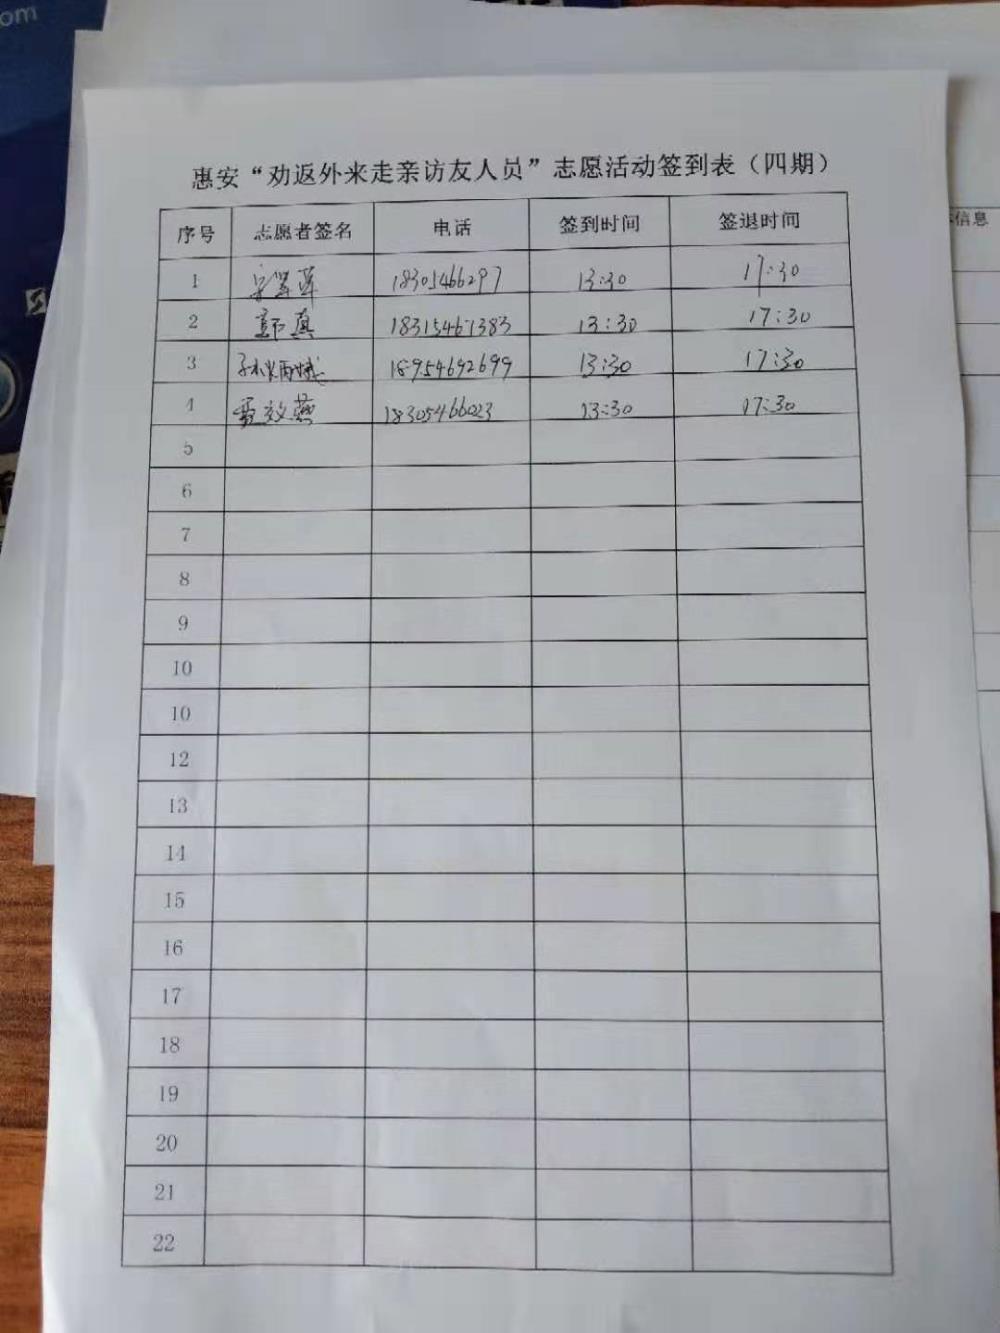 om
惠安“劝返外来走亲访友人员”志愿活动签到表（四期）
序号 志愿者签名 电话 签到时间 签退时间
1 18305466297 13:30 17:30
2 真 18315467383 13:30 17:30
3 孙炳娥 18954692699 13:30 17:30
4 雷效燕 18305466023 13:30 17:30
5
6
7
8
9
10
10
12
13
14
15
16
17
18
19
20
21
22
信息